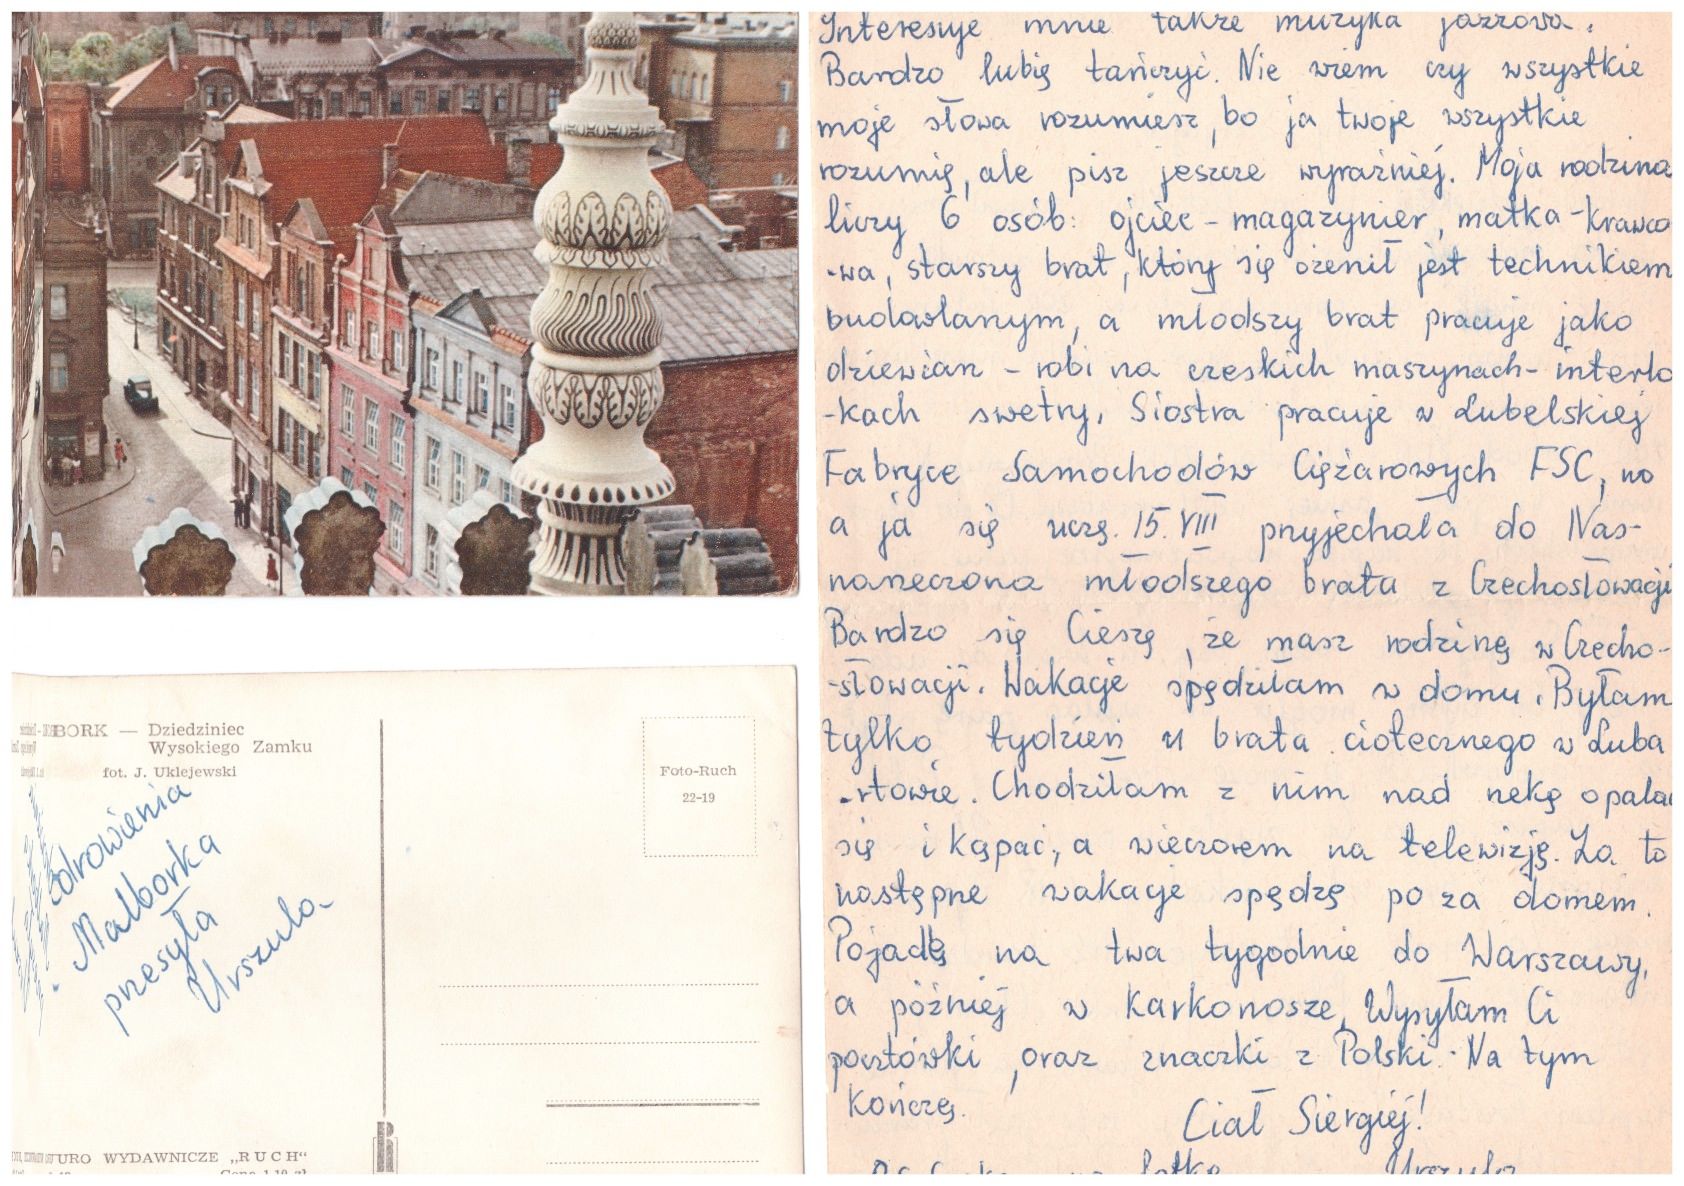 BORK — Dziedziniec
Wysokiego Zamku
fot. J. Uklejewski
Foto-Ruch
22-19
Pozdrowienia
Malborka
przesyła
Urszula
URO WYDAWNICZE „RUCH“
Cena 1,10 zł
Interesuje mnie także muzyka jazzowa.
Bardzo lubię tańczyć. Nie wiem czy wszystkie
moje słowa rozumiesz, bo ja twoje wszystkie
rozumię, ale pisz jeszcze wyraźniej. Moja rodzina
liczy 6 osób: ojciec - magazynier, matka - krawco
-wa, starszy brat, który się ożenił jest technikiem
budowlanym, a młodszy brat pracuje jako
dziewiarz - robi na czeskich maszynach - interlo
-kach swetry. Siostra pracuje w Lubelskiej
Fabryce Samochodów Ciężarowych FSC, no
a ja się uczę. 15. VIII przyjechała do Nas-
narzeczona młodszego brata z Czechosłowacji
Bardzo się Cieszę, że masz rodzinę w Czecho-
-słowacji. Wakacje spędziłam w domu. Byłam
tylko tydzień u brata ciotecznego w Luba
-rtowie. Chodziłam z nim nad rzekę opalać
się i kąpać, a wieczorem na telewizję. Za to
następne wakacje spędzę po za domem.
Pojadę na twa tygodnie do Warszawy,
a później w Karkonosze, Wysyłam Ci
pocztówki, oraz znaczki z Polski. Na tym
kończę.
Ciał Siergiej!
Urszula